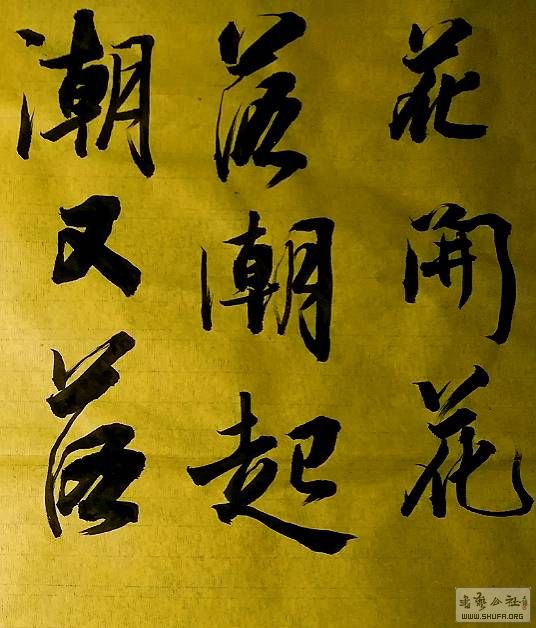 花開花
落潮起
潮又落
书艺公社
WWW.SHUFA.ORG